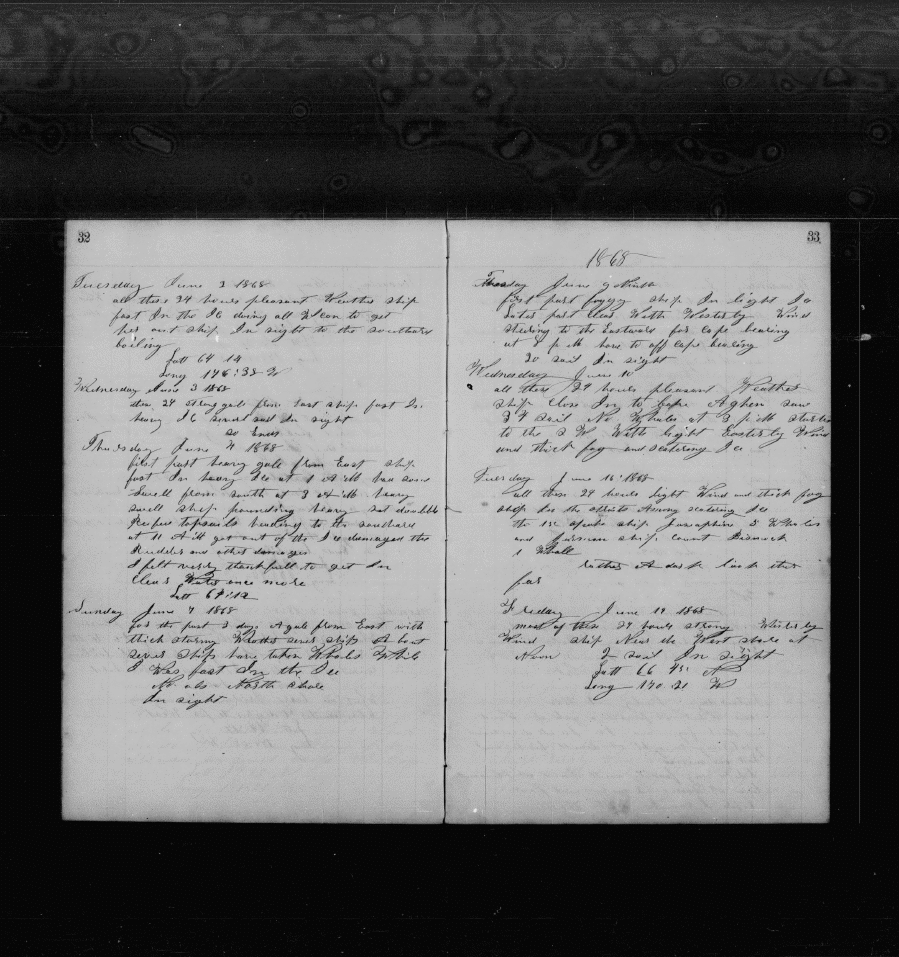 32
Tuesday June 2 1868
all these 24 hours pleasant Weather ship
fast In the Ice doing all I can to get
her out ship In sight to the southard
boiling
Latt 64 14
Long 176:38 W
Wednesday June 3 1868
these 24 strong gale from East ship fast In
heavy Ice sevrel sail In sight
So Ends
Thursday June 4 1868
first part heavy gale from East ship
fast In heavy Ice at 1 A M had some
Swell from south at 3 A M heavy
swell ship pounding heavy sat double
Reefed topsails heading to the southard
at 11 A M got out of the Ice damaged the
Rudder and other damages
I felt verry thankfull to get In
Clear Water once more
Latt 64:12
Sunday June 7 1868
for the past 3 days A gale from East with
thick stormy Weather sevrel ships A bout
sevrel ships have taken Whales While
I Was fast In the Ice
No obs North shore
In sight
33
1868
Tuesday June 9
first part foggy ship In light Ice
Later part Clear With Westerly Wind
steering to the Eastward for cape bearing
at 8 P M hove to off cape bearing
20 sail In sight
Wednesday June 10
all these 24 hours pleasant Weather
ship Close In to Cape Aghen saw
34 sail No Whales at 3 P M started
to the S W With light Easterly Wind
and thick fog and scatering Ice
Tuesday June 16 1868
all these 24 hours light Wind and thick fog
ship Among scatering Ice
the 15 spoke ship Jurosphine 5 Whales
and ship Count Bismark
1 Whale
rather A dark look thus
far
Friday June 19 1868
most of these 24 hours strong Westerly
Wind ship Near the West shore at
Noon 2 sail In sight
Latt 66 45 N
Long 170 21 W